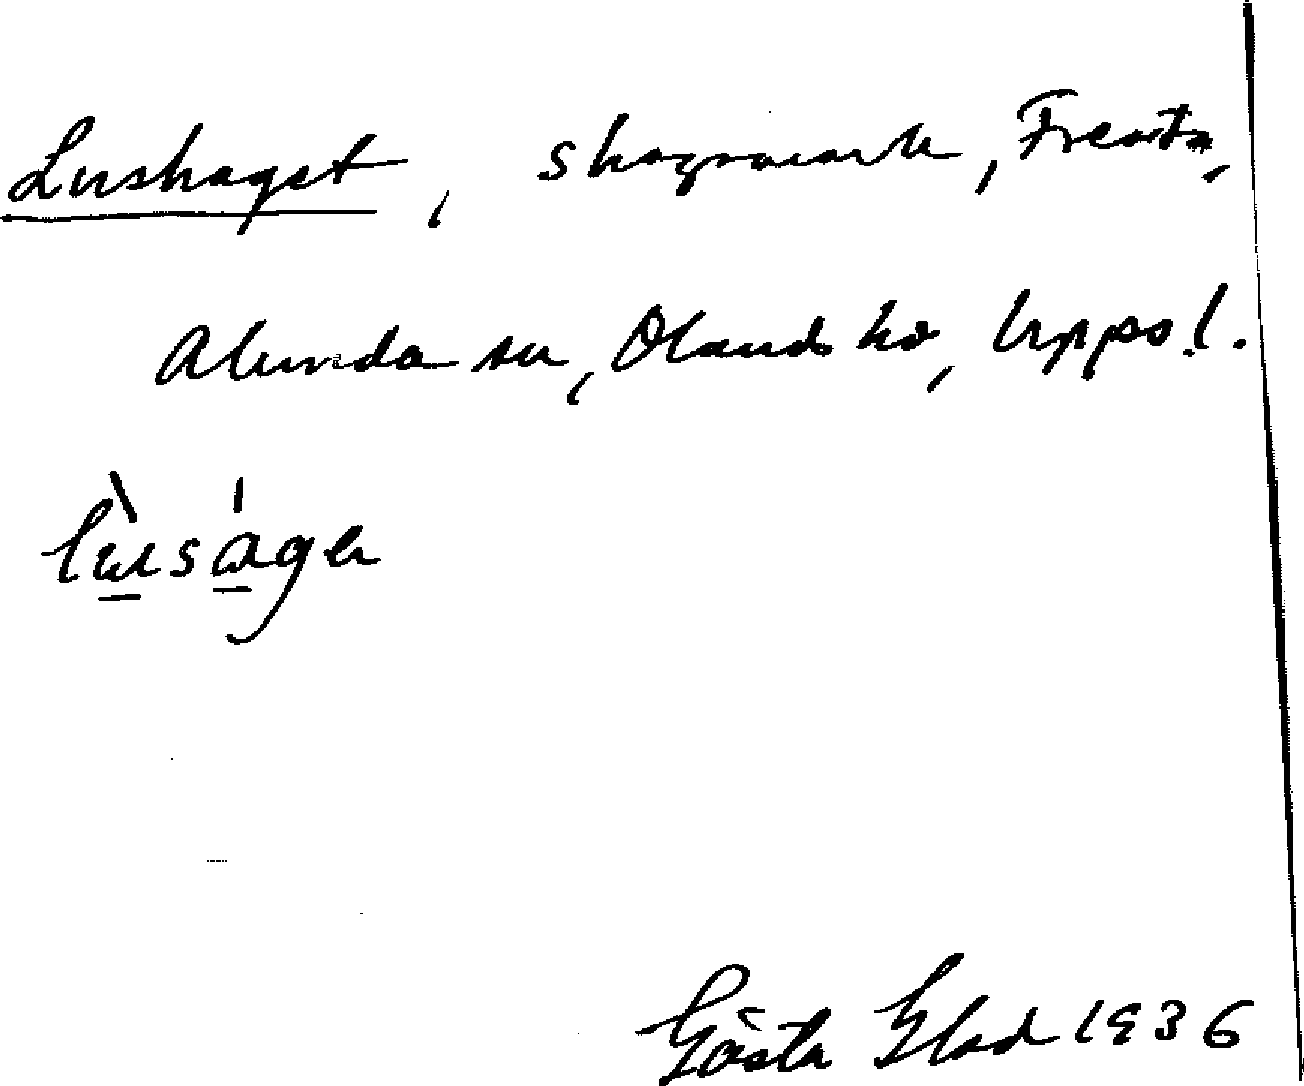 Lushaget, skogsmark, Fresta,
Alunda sn, Olands hd, Uppsal.
Gösta 1936